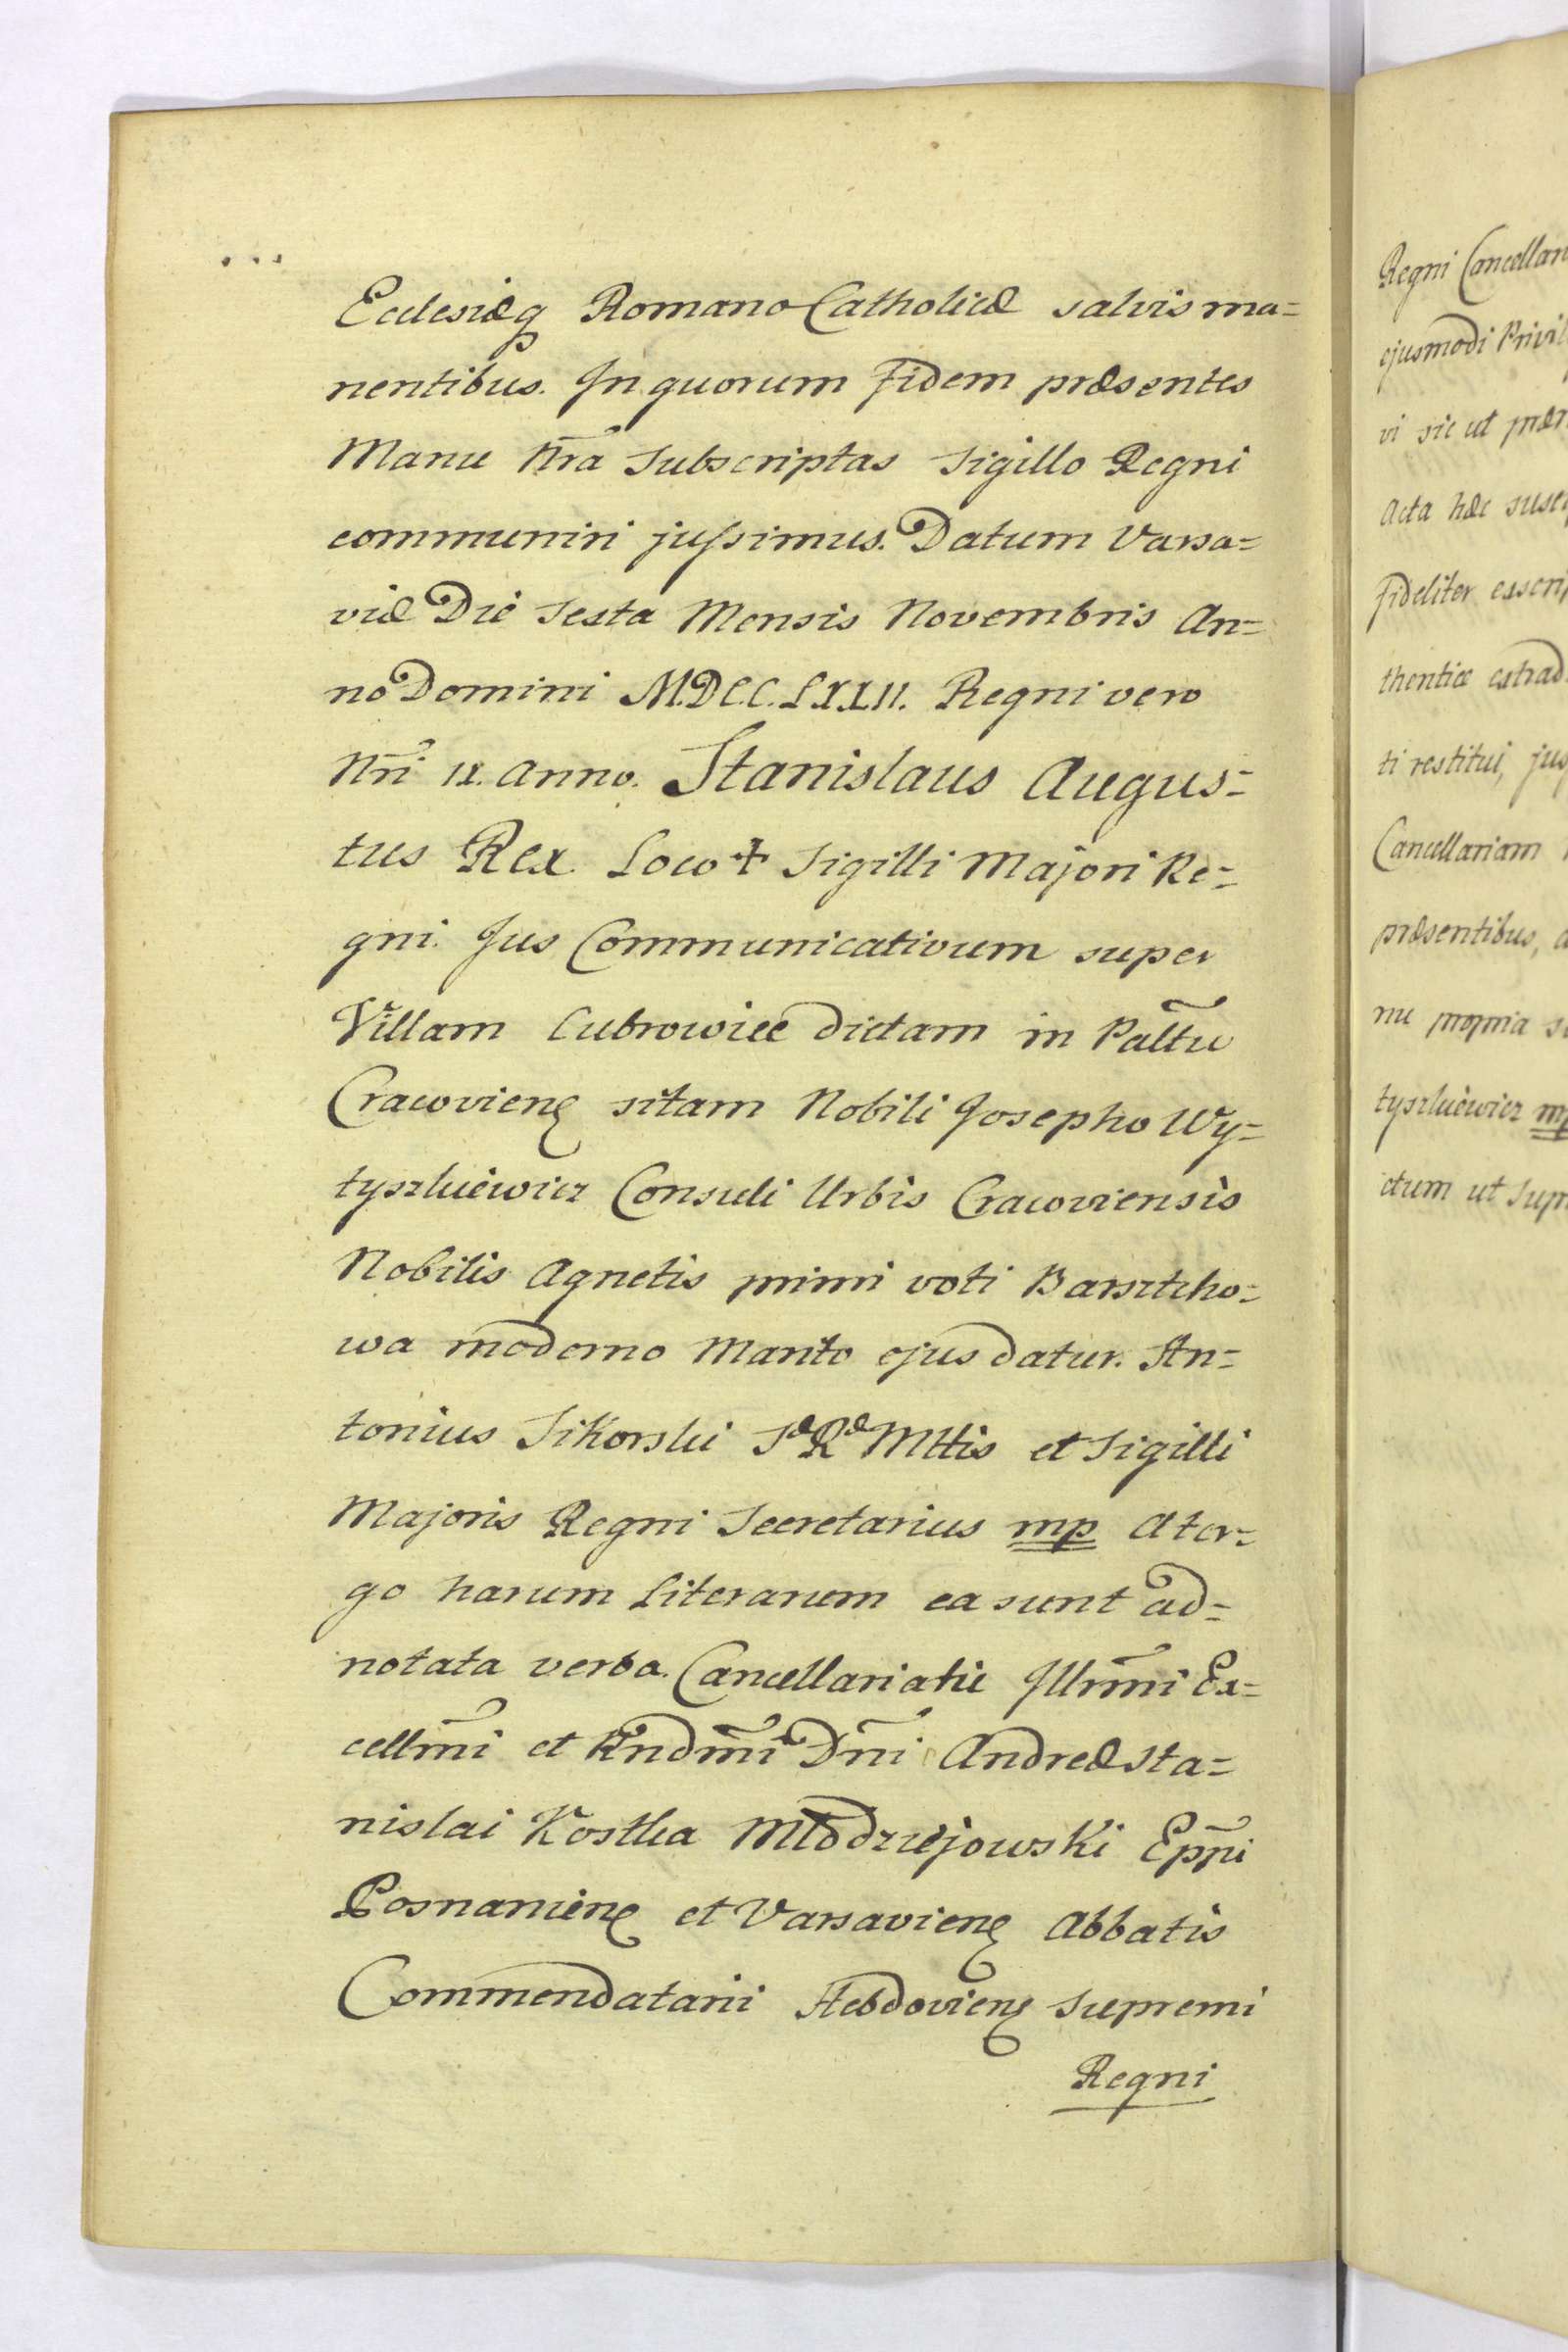 Ecclesiæq Romano Catholicæ salvis ma=
nentibus. In quorum fidem præsentes
Manu Nrã Subscriptas Sigillo Regni
communiri jussimus. Datum Varsa=
viæ Die Sexta Mensis Novembris An=
no Domini M.DCC.LXXII. Regni vero
Nrĩ IX. Anno. Stanislaus Augus=
tus Rex. Loco ✝ Sigilli Majori Re=
gni. Jus Communicativum super
Villam Cubrowice dictam in Palttu
Cracovien sitam Nobili Josepho Wy=
tyszkiewicz Consuli Urbis Cracoviensis
Nobilis Agnetis primi voti Barsztcho=
wa moderno Marito ejus datur. An=
tonius Sikorski Sæ Ræ Mttis et Sigilli
Majoris Regni Secretarius mp A ter=
go harum Literarum ea sunt ad=
notata verba. Cancellariatu Illrmĩ Ex=
cellmĩ et Rndmĩ Dnĩ Andreæ Sta=
nislai Kostka Młodziejowski Eppĩ
Posnanien et Varsavien Abbatis
Commendatarii Hebdovien Supremi
Regni
Regni Cancellari
ejusmodi Privil
vi sic ut præ
Acta hæc susc
fideliter exscri
thentice extrad
ti restitui, jus
Cancellariam
præsentibus,
nu propria s
tyszkiewicz mp
ctum ut Supr